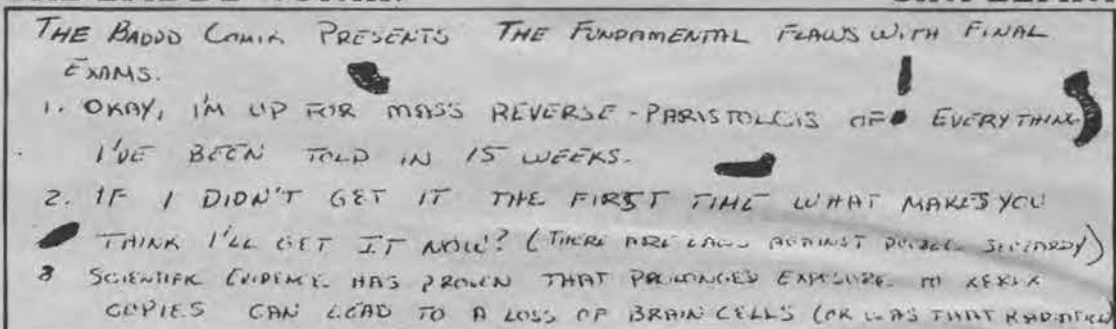 THE BADDD COMIX PRESENTS THE FUNDAMENTAL FLAWS WITH FINAL
EXAMS.
1. OKAY, I'M UP FOR MASS REVERSE-PARISTOLCIS OF EVERYTHING
I'VE BEEN TOLD IN 15 WEEKS.
2. IF I DIDN'T GET IT THE FIRST TIME WHAT MAKES YOU
THINK I'LL GET IT NOW? (THERE ARE LAWS AGAINST DOUBLE JEOPARDY)
3 SCIENTIFIC EVIDENCE HAS PROVEN THAT PROLONGED EXPOSURE TO XEROX
COPIES CAN LEAD TO A LOSS OF BRAIN CELLS (OR WAS THAT RADIATION